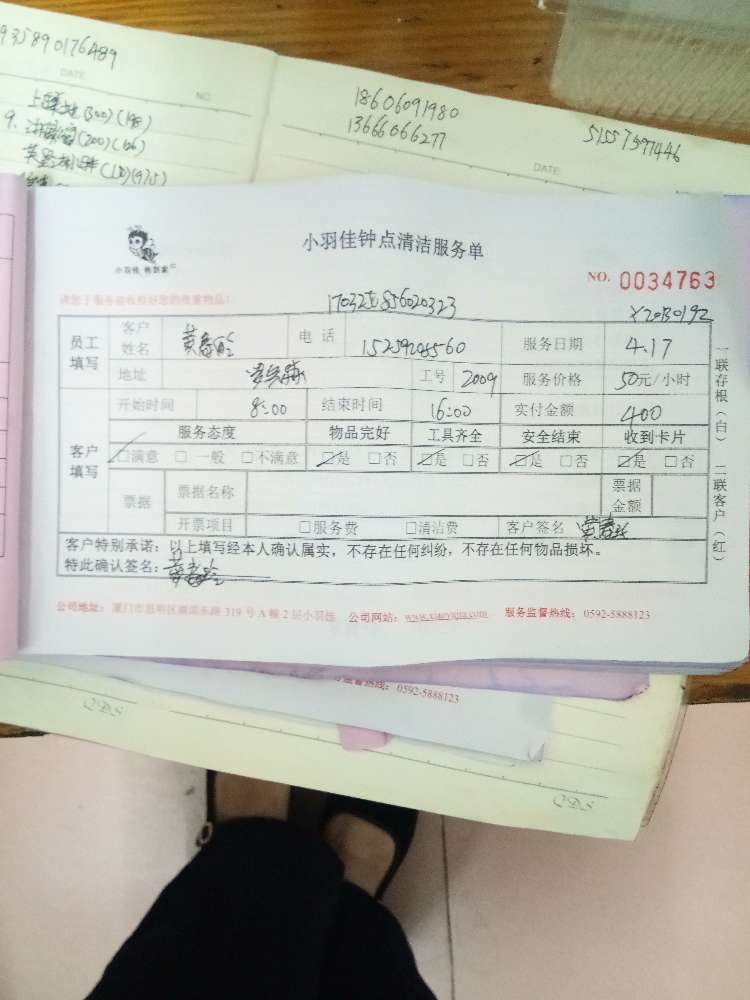 935890176489
DATE
NO.
18606091980
13666066277
51557397446
DATE:
小羽佳钟点清洁服务单
小羽佳 帮到家
NO. 0034763
请您于服务前收检好您的贵重物品!
Y20130192
员工填写 客户姓名 电话 服务日期 4.17
地址 工号 2009 服务价格 50元/小时
开始时间 8:00 结束时间 16:00 实付金额 400
客户填写 服务态度 物品完好 工具齐全 安全结束 收到卡片
☑满意 □一般 □不满意 ☑是 □否 ☑是 □否 ☑是 □否 ☑是 □否
票据 票据名称 票据金额
开票项目 □服务费 □清洁费 客户签名
客户特别承诺:以上填写经本人确认属实,不存在任何纠纷,不存在任何物品损坏。
特此确认签名:
一联存根(白) 二联客户(红)
公司地址:厦门市思明区湖滨东路 319 号 A 幢 2 层小羽佳 公司网站:www.xiaoyujia.com 服务监督热线:0592-5888123
监督热线:0592-5888123
QDS
QDS